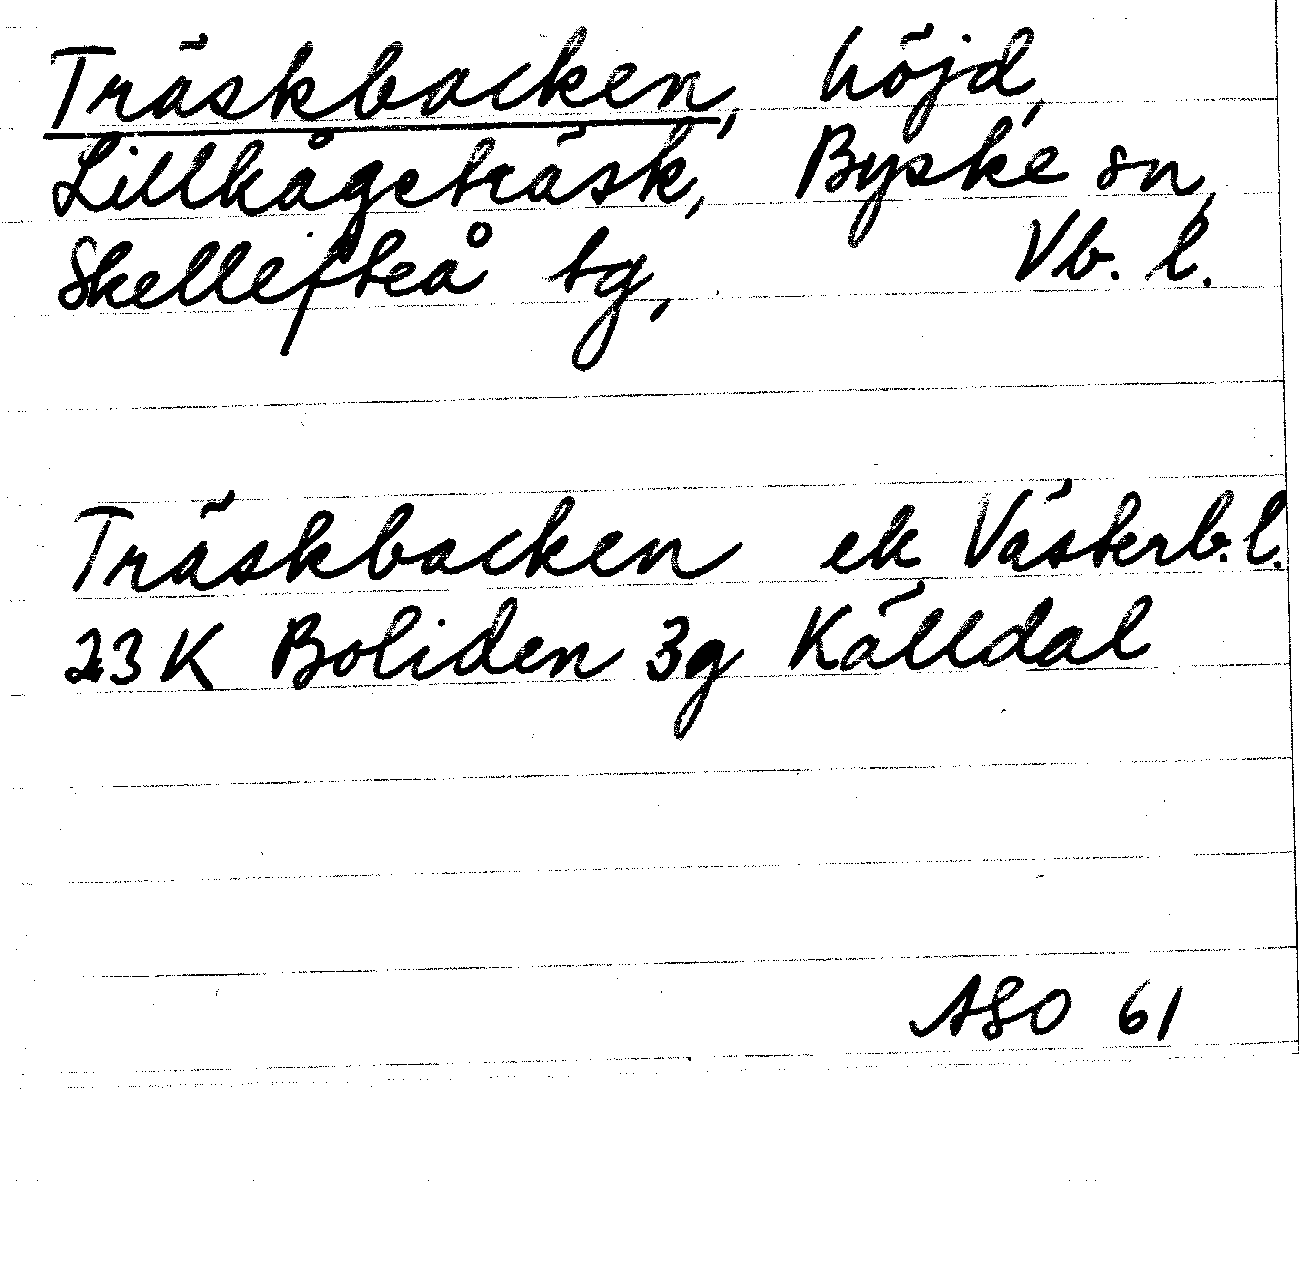 Träskbacken, höjd,
Lillkågeträsk, Byske sn,
Skellefteå tg, Vb. l.
Träskbacken ek Västerb.l.
23K Boliden 3g Källdal
ASO 61